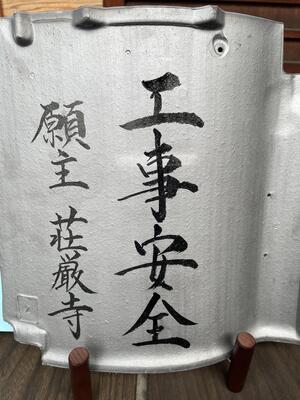 工事安全
願主 荘厳寺